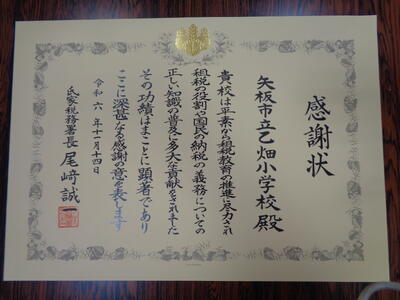 感謝状
矢板市立乙畑小学校殿
貴校は平素から租税教育の推進に尽力され
租税の役割や国民の納税の義務についての
正しい知識の普及に多大な貢献をされました
その功績はまことに顕著であり
ここに深甚なる感謝の意を表します
令和六年十一月十四日
氏家税務署長尾﨑誠一